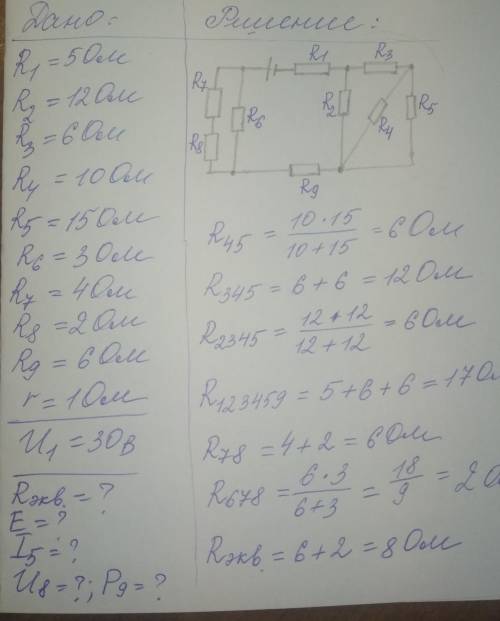 Дано:
R1 = 5 Ом
R2 = 12 Ом
R3 = 6 Ом
R4 = 10 Ом
R5 = 15 Ом
R6 = 3 Ом
R7 = 4 Ом
R8 = 2 Ом
R9 = 6 Ом
r = 1 Ом
U1 = 30 В
Rэкв. = ?
E = ?
I5 = ?
U8 = ?; P9 = ?
Решение:
R1
R3
R7
R2
R6
R4
R5
R8
R9
R45 = 10 · 15 / 10 + 15 = 6 Ом
R345 = 6 + 6 = 12 Ом
R2345 = 12 · 12 / 12 + 12 = 6 Ом
R123459 = 5 + 6 + 6 = 17 Ом
R78 = 4 + 2 = 6 Ом
R678 = 6 · 3 / 6 + 3 = 18 / 9 = 2 О
Rэкв. = 6 + 2 = 8 Ом